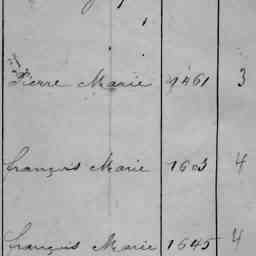 Pierre Marie 1461 3
françois Marie 1603 4
françois Marie 1645 4